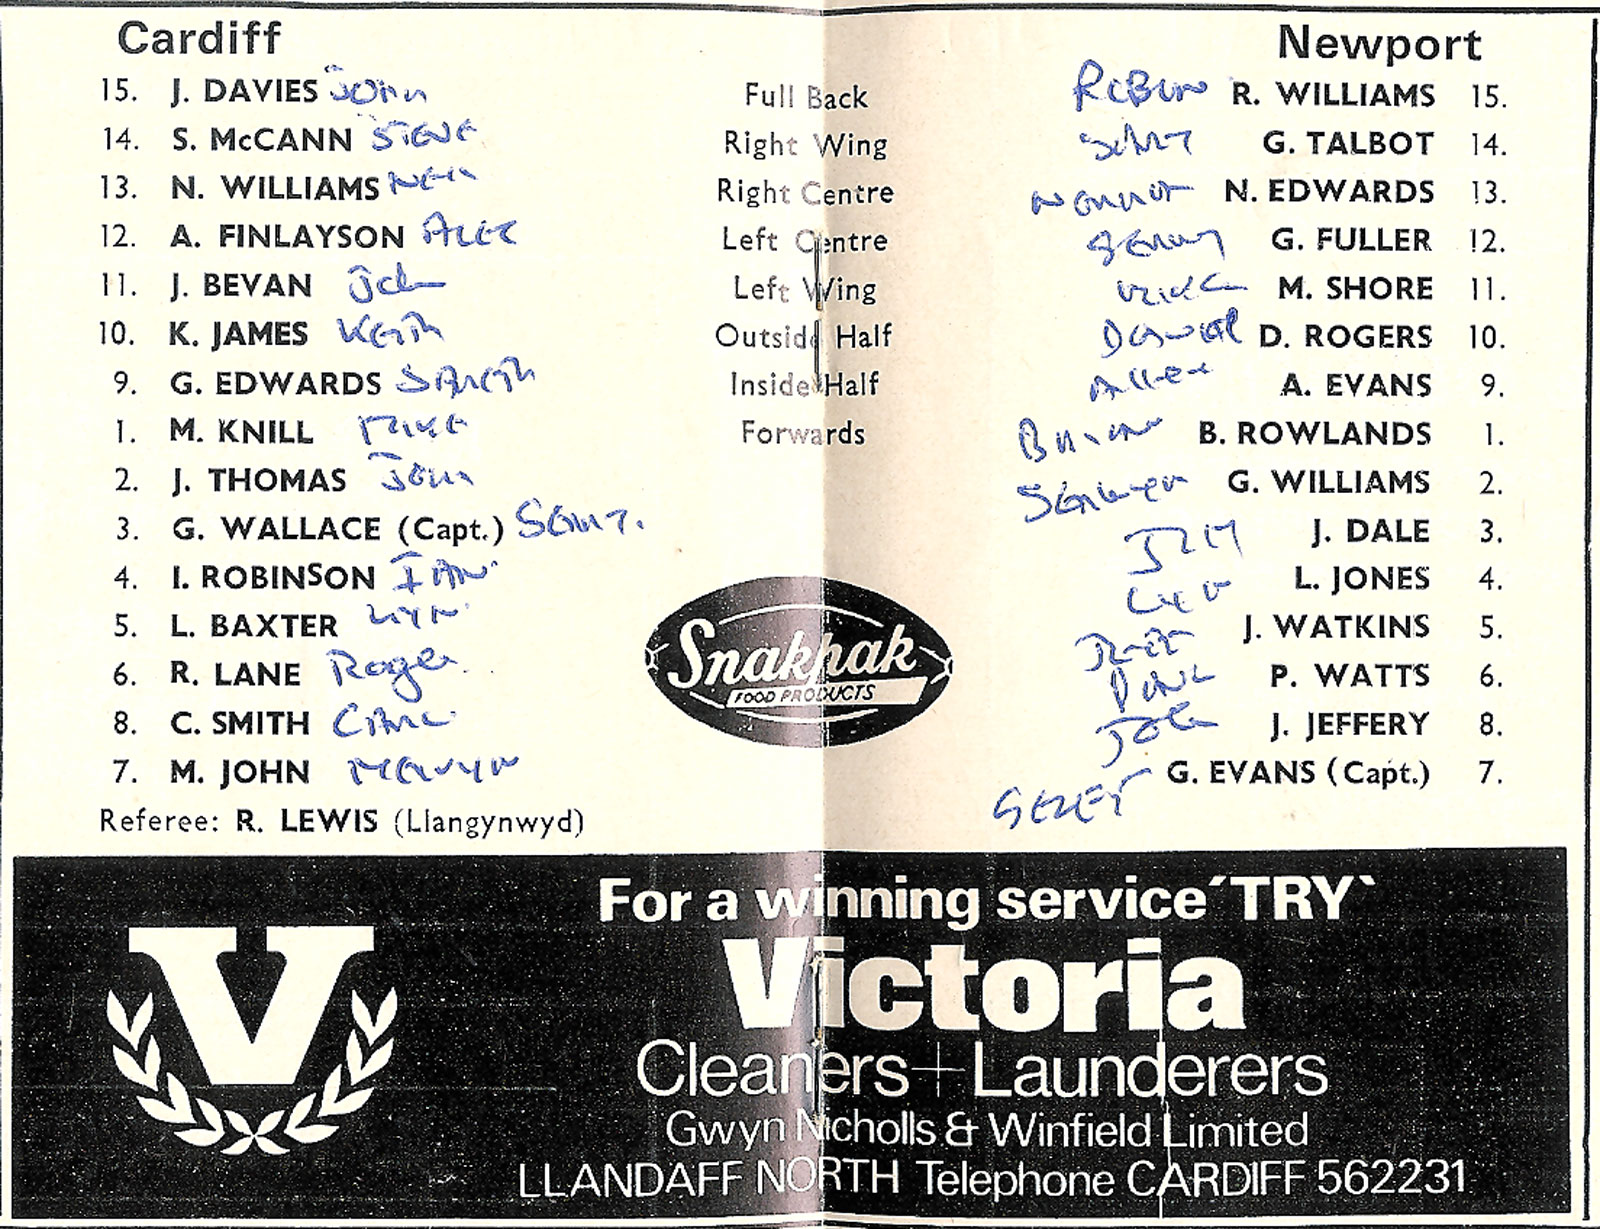 Cardiff Newport
15. J. DAVIES John Full Back Robin R. WILLIAMS 15.
14. S. McCANN STEVE Right Wing G. TALBOT 14.
13. N. WILLIAMS Neil Right Centre N. EDWARDS 13.
12. A. FINLAYSON ALEC Left Centre GERRY G. FULLER 12.
11. J. BEVAN John Left Wing M. SHORE 11.
10. K. JAMES KEITH Outside Half D. ROGERS 10.
9. G. EDWARDS GARETH Inside Half Allen A. EVANS 9.
1. M. KNILL MIKE Forwards B. ROWLANDS 1.
2. J. THOMAS John G. WILLIAMS 2.
3. G. WALLACE (Capt.) J. DALE 3.
4. I. ROBINSON IAN L. JONES 4.
5. L. BAXTER LYN J. WATKINS 5.
6. R. LANE Roger P. WATTS 6.
8. C. SMITH CARL J. JEFFERY 8.
7. M. JOHN MERVYN G. EVANS (Capt.) 7.
Referee: R. LEWIS (Llangynwyd)
Snakpak
FOOD PRODUCTS
V
For a winning service ´TRY`
Victoria
Cleaners + Launderers
Gwyn Nicholls & Winfield Limited
LLANDAFF NORTH Telephone CARDIFF 562231